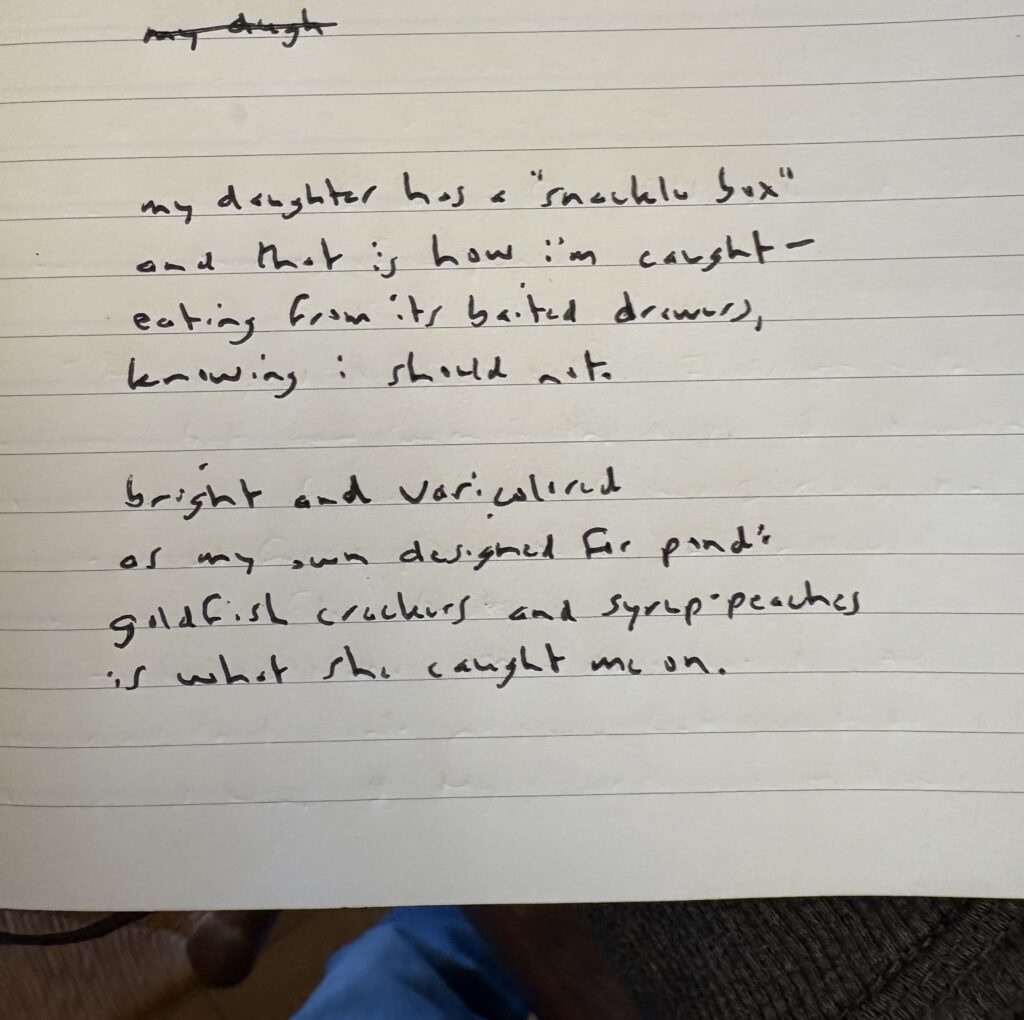 my daugh
my daughter has a "snackle box"
and that is how i'm caught—
eating from its baited drawers,
knowing i should not.
bright and varicolored
as my own designed for pond:
goldfish crackers and syrup-peaches
is what she caught me on.